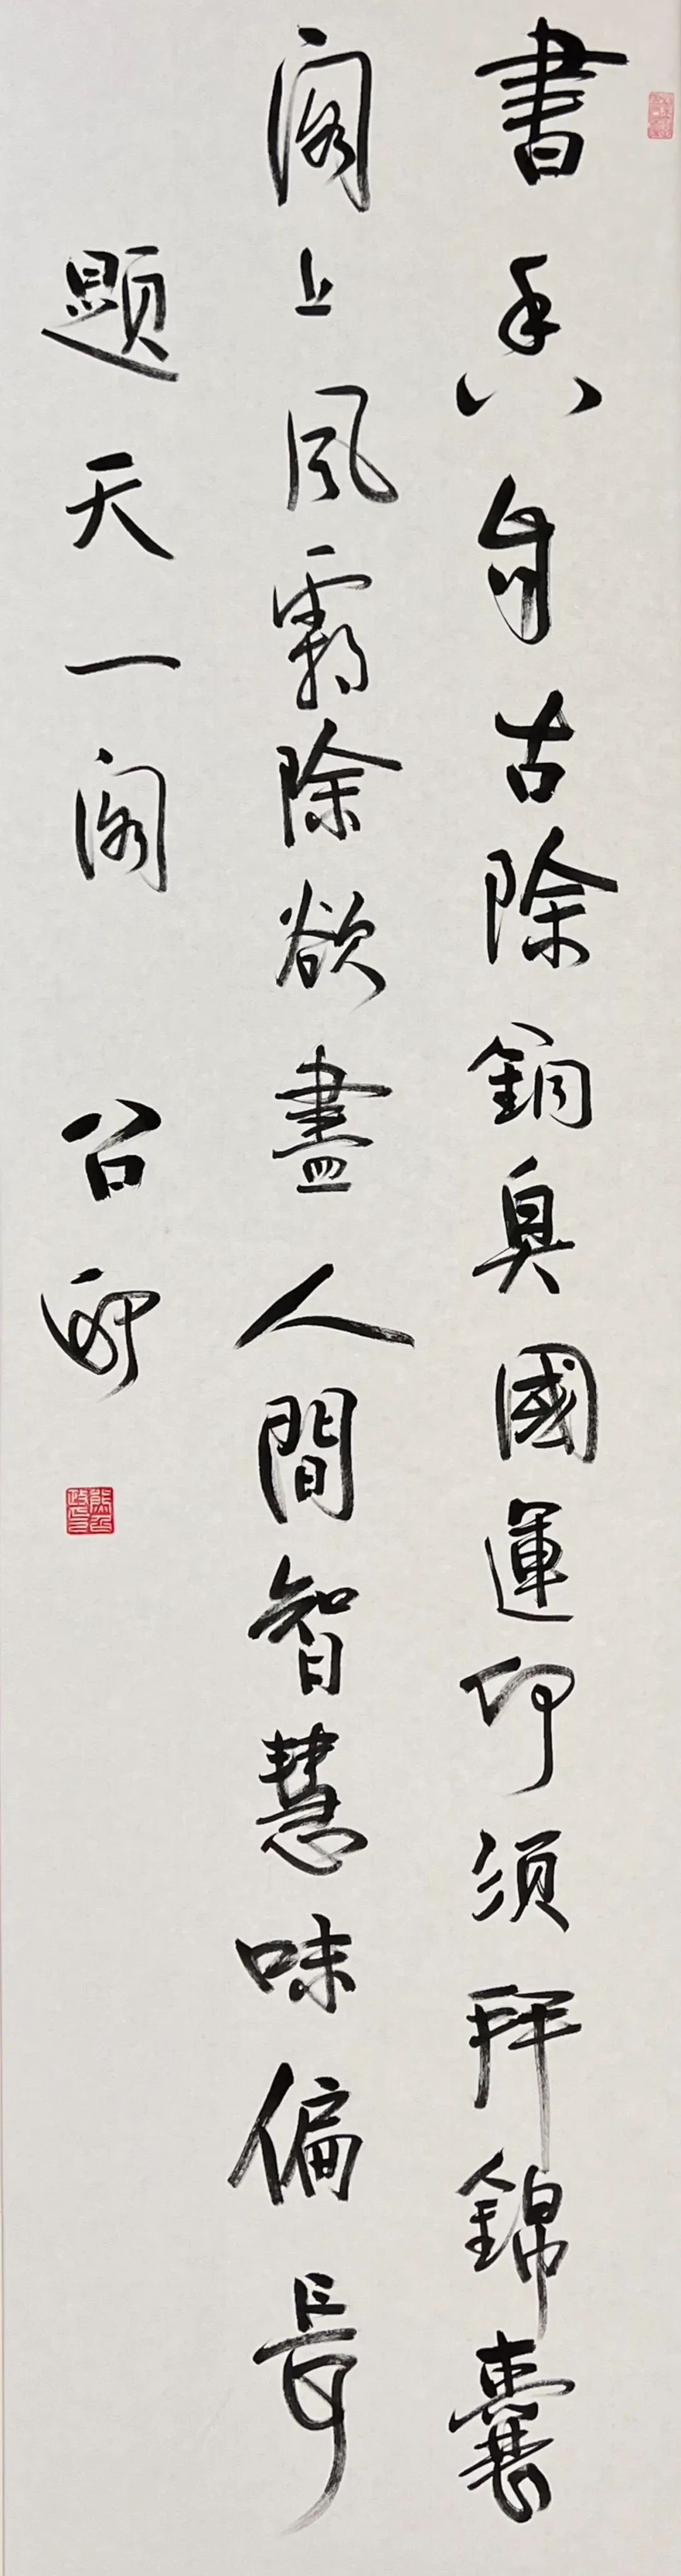 書香自古除銅臭國運何須拜錦囊
閣上風霜除欲盡人間智慧味偏長
題天一閣 召政
熊召政印